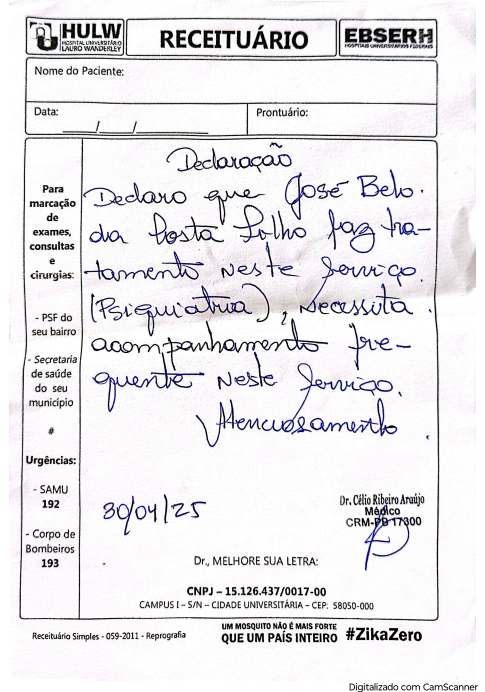 HULW
HOSPITAL UNIVERSITÁRIO
LAURO WANDERLEY
RECEITUÁRIO
EBSERH
HOSPITAIS UNIVERSITÁRIOS FEDERAIS
Nome do Paciente:
Data: ___/___/______
Prontuário:
Para
marcação
de
exames,
consultas
e
cirurgias:
- PSF do
seu bairro
- Secretaria
de saúde
do seu
município
#
Urgências:
- SAMU
192
- Corpo de
Bombeiros
193
Declaração
Declaro que José Belo.
da Costa Filho faz tra-
tamento neste serviço.
(Psiquiatria), necessita.
acompanhamento fre-
quente neste serviço.
Atenciosamente.
30/04/25
Dr. Célio Ribeiro Araújo
Médico
CRM-PB 17300
Dr., MELHORE SUA LETRA:
CNPJ – 15.126.437/0017-00
CAMPUS I – S/N – CIDADE UNIVERSITÁRIA – CEP: 58050-000
Receituário Simples - 059-2011 - Reprografia
UM MOSQUITO NÃO É MAIS FORTE
QUE UM PAÍS INTEIRO #ZikaZero
Digitalizado com CamScanner